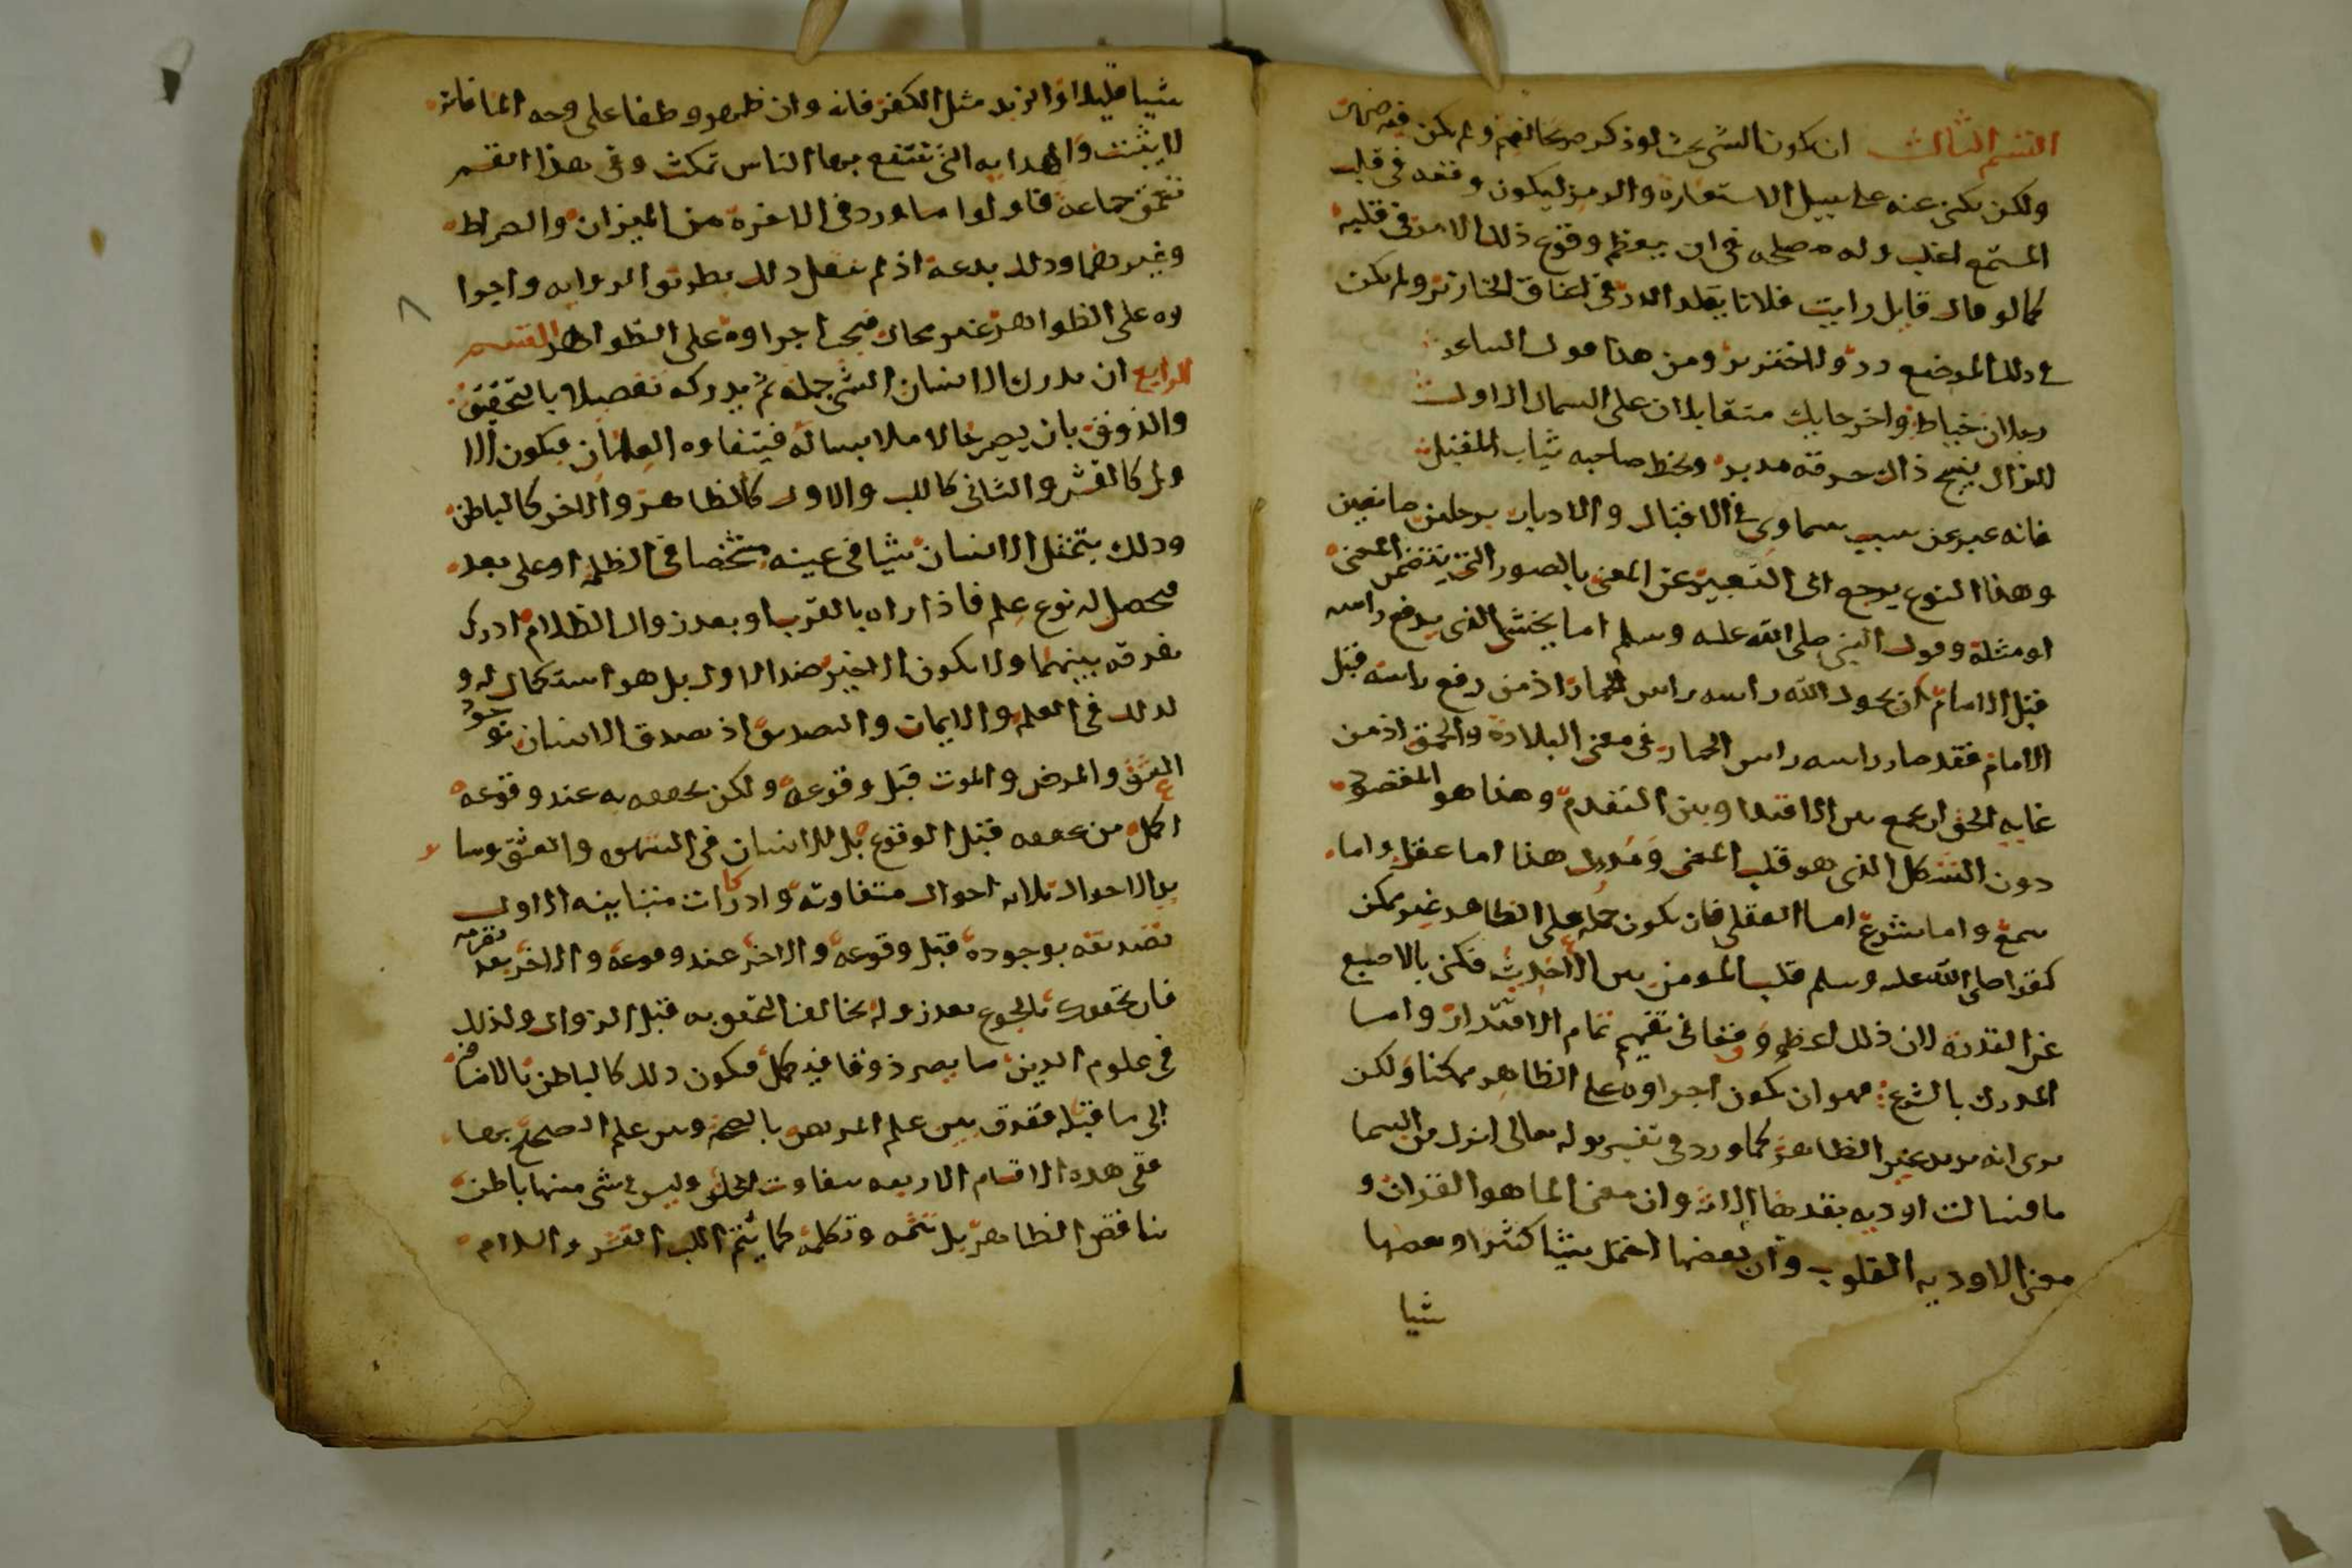 القسم الثالث ان يكون الشي بحيث لو ذكر صريحا لفهم ولم يكن فيه ضرر
ولكن يكنى عنه على سبيل الاستعارة والرمز ليكون وقعه في قلب
المستمع اغلب وله مصلحه في ان يعظم وقوع ذلك الامر في قلبه
كما لو قال قايل رايت فلانا يقلد الدر في اعناق الخنازير ولم يكن
في ذلك الموضع در ولا خنزير ومن هذا قول الشاعر
رجلان خياط واخر حايك متقابلان على السماك الاول
لازال ينسج ذاك خرقة مدبر ويخيط صاحبه ثياب المقبل
فانه عبر عن سبب سماوي في الاقبال والادبار برجلين صانعين
وهذا النوع يرجع الى التعبير عن المعنى بالصور التي تتضمن المعنى
او مثله وقول النبي صلى الله عليه وسلم اما يخشى الذي يرفع راسه
قبل الامام ان يحول الله راسه راس الحمار اذ من رفع راسه قبل
الامام فقد صار راسه راس الحمار في معنى البلادة والحمق اذ من
غاية الحمق ان يجمع بين الاقتدا وبين التقدم وهذا هو المقصود
دون الشكل الذي هو قلب المعنى ومدرك هذا اما عقل واما
سمع واما شرع اما العقلي فان يكون حمله على الظاهر غير ممكن
كقوله صلى الله عليه وسلم قلب المومن بين فكنى بالاصبع
عن القدرة لان ذلك اعظم وقعا في تفهيم تمام الاقتدار واما
المدرك بالشرع فهو ان يكون اجراوه على الظاهر ممكنا ولكن
يروى انه يريد غير الظاهر كما ورد في تفسير قوله تعالى انزل من السما
ما فسالت اوديه بقدرها الاية وان معنى الما هو القران و
معنى الاوديه القلوب وان بعضها احتمل شيئا كثيرا وبعضها
شيا
شيا قليلا او الزبد مثل الكفر فانه وان ظهر وطفا على وجه الما فانه
لا يثبت والهدايه التي تنتفع بها الناس تمكث وفي هذا القسم
تعمق جماعة فاولوا ما ورد في الاخرة من الميزان والصراط
وغيرهما وذلك بدعة اذ لم ينقل ذلك بطريق الروايه واجرا
وه على الظواهر غير محال فيجب اجراوه على الظواهر القسم
الرابع ان يدرك الانسان الشي جملة ثم يدركه تفصيلا بالتحقيق
والذوق بان يصير حالا ملابسا له فيتفاوت العلمان فيكون الا
ول كالقشر والثاني كاللب والاول كالظاهر والاخر كالباطن
وذلك يتمثل الانسان شيا في عينه شخصا في الظلمه او على بعد
فيحصل له نوع علم فاذا راه بالقرب او بعد زوال الظلام ادرك
تفرقه بينهما ولا يكون الاخير ضد الاول بل هو استكمال له و
كذلك في العلم والايمان والتصديق اذ يصدق الانسان بوجود
العشق والمرض والموت قبل وقوعه ولكن تحققه به عند وقوعه
اكمل من تحققه قبل الوقوع بل للانسان في الشهوه والعشق وسا
ير الاحوال ثلاثه احوال متفاوته وادراكات متباينه الاول
تصديقه بوجوده قبل وقوعه والاخر عند وقوعه والاخر بعد تصرمه
فان تحققك بالجوع بعد زواله يخالف التحقق به قبل الزوال وكذلك
في علوم الدين ما يصير ذوقا فيكمل فيكون ذلك كالباطن بالاضافة
الى ما قبله ففرق بين علم المريض بالصحة وبين علم الصحيح بها
ففي هذه الاقسام الاربعه يتفاوت الخلق وليس في شي منها باطن
يناقض الظاهر بل يتممه ويكمله كما يتمم اللب القشر والسلام